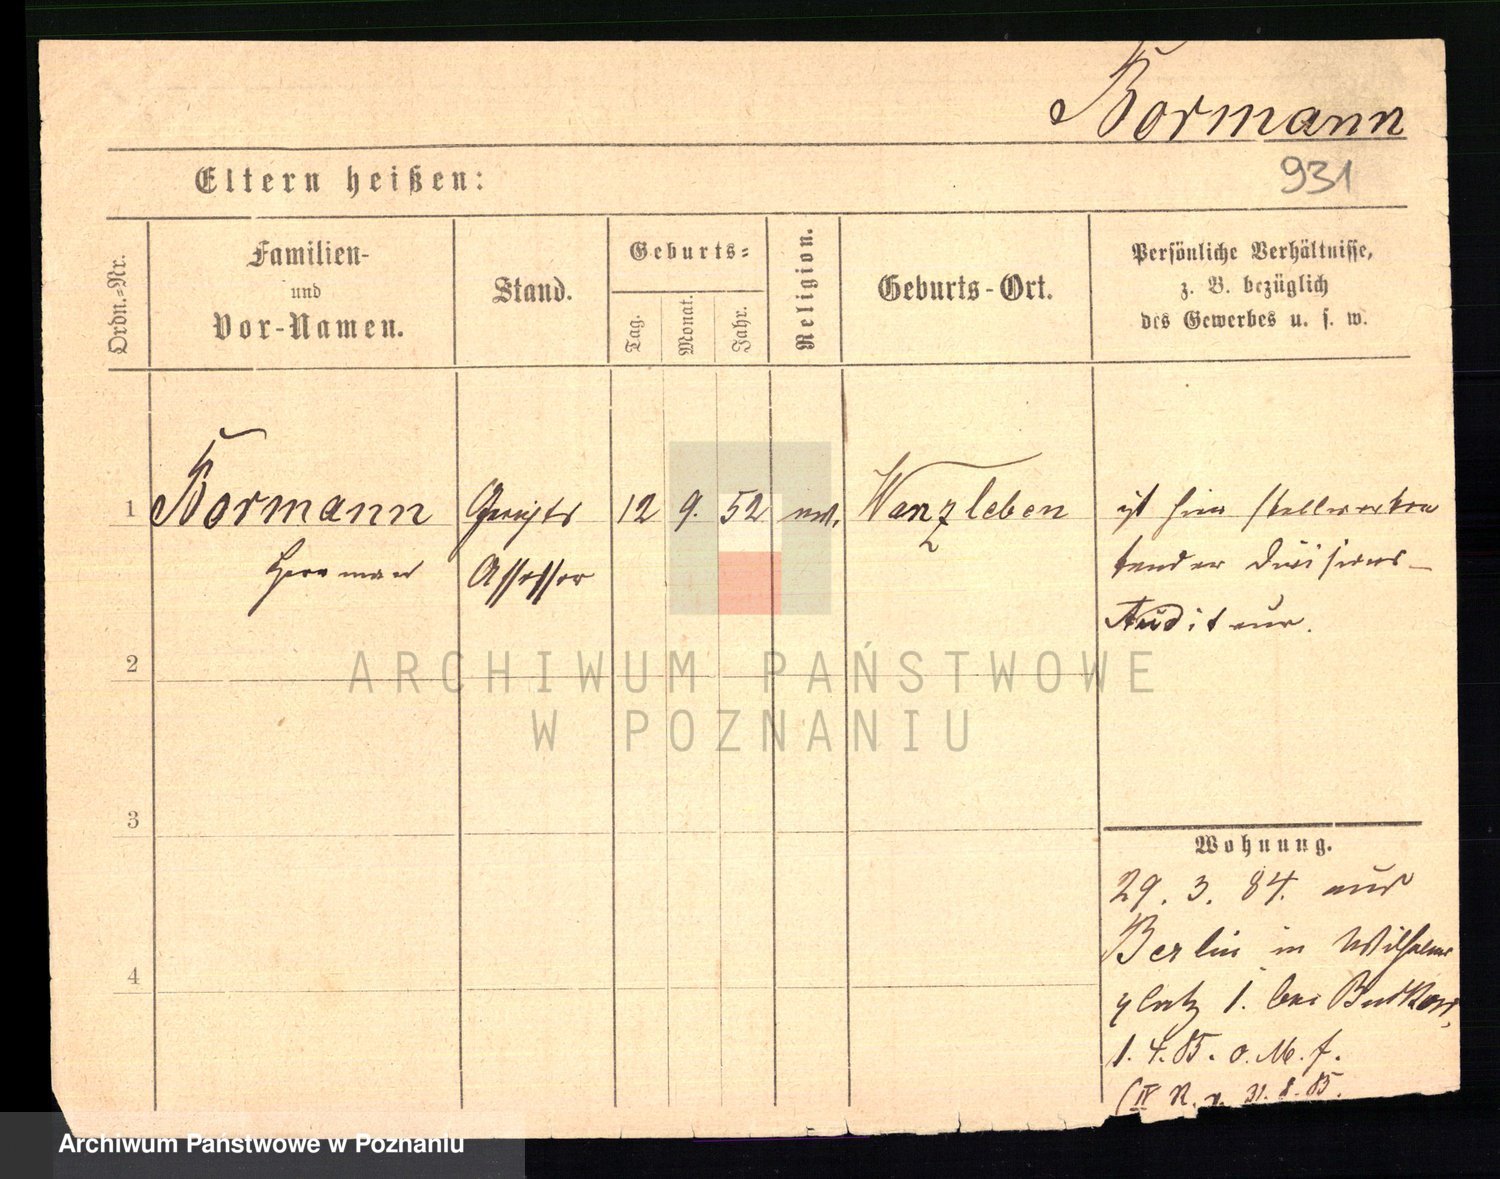 Bormann
931
Eltern heißen:
Ordn.-Nr.
Familien-
und
Vor-Namen.
Stand.
Geburts-
Tag.
Monat.
Jahr.
Religion.
Geburts-Ort.
Persönliche Verhältnisse,
z. B. bezüglich
des Gewerbes u. s. w.
1 Bormann Gerichts 12 9. 52 ev. Wanzleben ist hier stellvertre
Hermann Assessor tender Divisions-
Auditeur.
2
3
4
Wohnung.
29. 3. 84. aus
Berlin in Wilhelms
platz 1. bei
1. 4. 85. o. M. f.
(IV R. v. 31. 8. 85.
ARCHIWUM PAŃSTWOWE
W POZNANIU
Archiwum Państwowe w Poznaniu